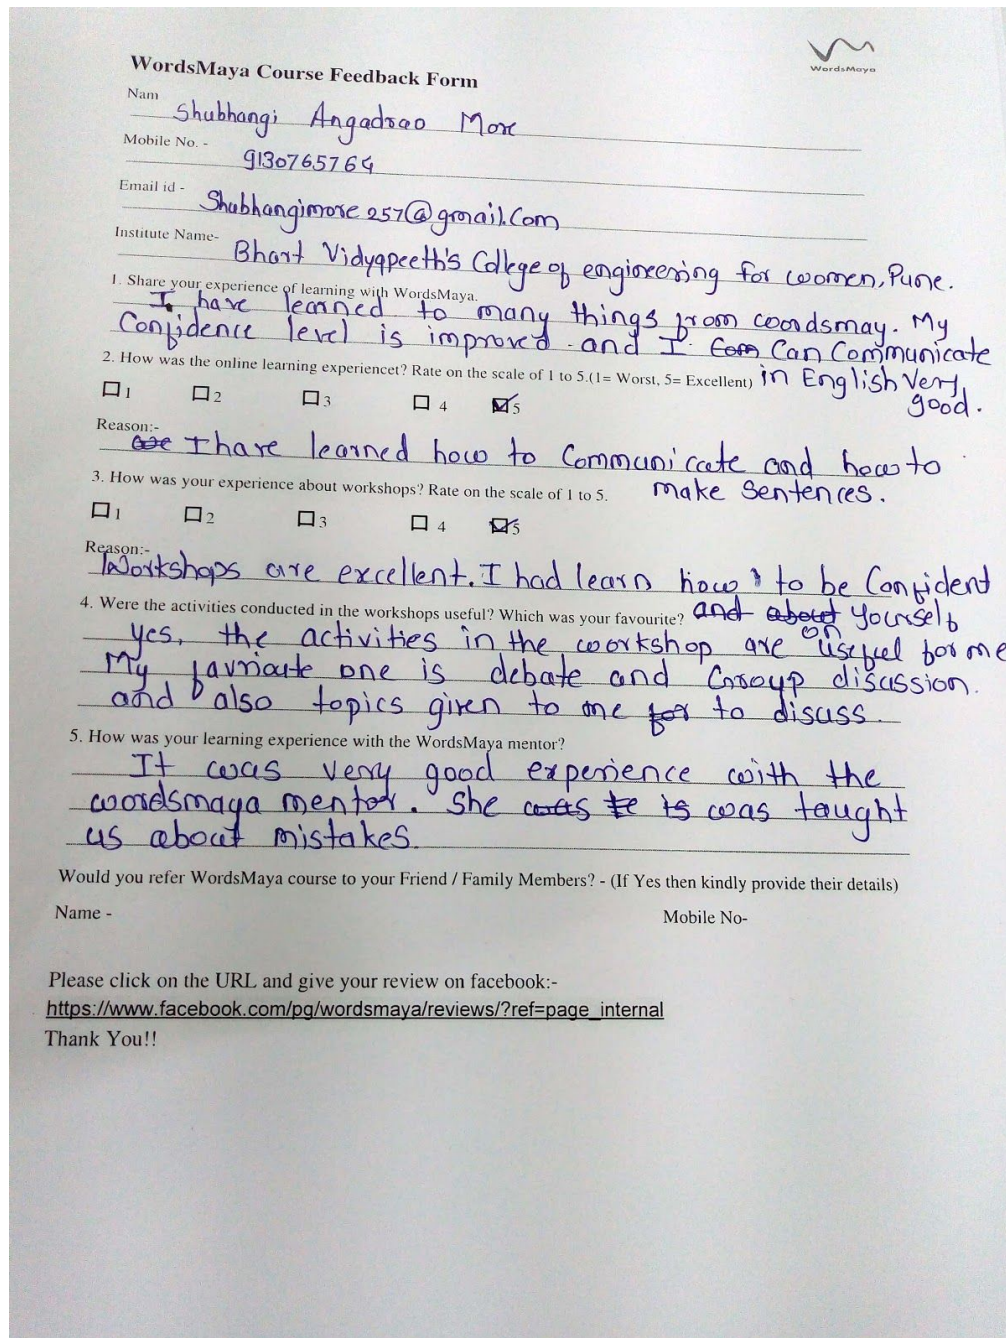 WordsMaya
WordsMaya Course Feedback Form
Nam
Shubhangi Angadrao More
Mobile No. -
9130765764
Email id -
Shubhangimore257@gmail.com
Institute Name-
Bhart Vidyapeeth's College of engineering for women, Pune.
1. Share your experience of learning with WordsMaya.
I have learned to many things from woordsmay. My
Confidence level is improved and I Can Communicate
2. How was the online learning experiencet? Rate on the scale of 1 to 5.(1= Worst, 5= Excellent)
in English Very
good.
1 2 3 4 5
Reason:-
I have learned how to Communiccate and how to
3. How was your experience about workshops? Rate on the scale of 1 to 5.
make sentences.
1 2 3 4 5
Reason:-
Workshops are excellent. I had learn how to be Confident
4. Were the activities conducted in the workshops useful? Which was your favourite?
and about yourself
on
yes, the activities in the workshop are useful for me
My one is debate and Group discussion.
and also topics given to me for to discuss.
5. How was your learning experience with the WordsMaya mentor?
It was very good experience with the
woordsmaya mentor. She was te is was taught
us about mistakes.
Would you refer WordsMaya course to your Friend / Family Members? - (If Yes then kindly provide their details)
Name - Mobile No-
Please click on the URL and give your review on facebook:-
https://www.facebook.com/pg/wordsmaya/reviews/?ref=page_internal
Thank You!!